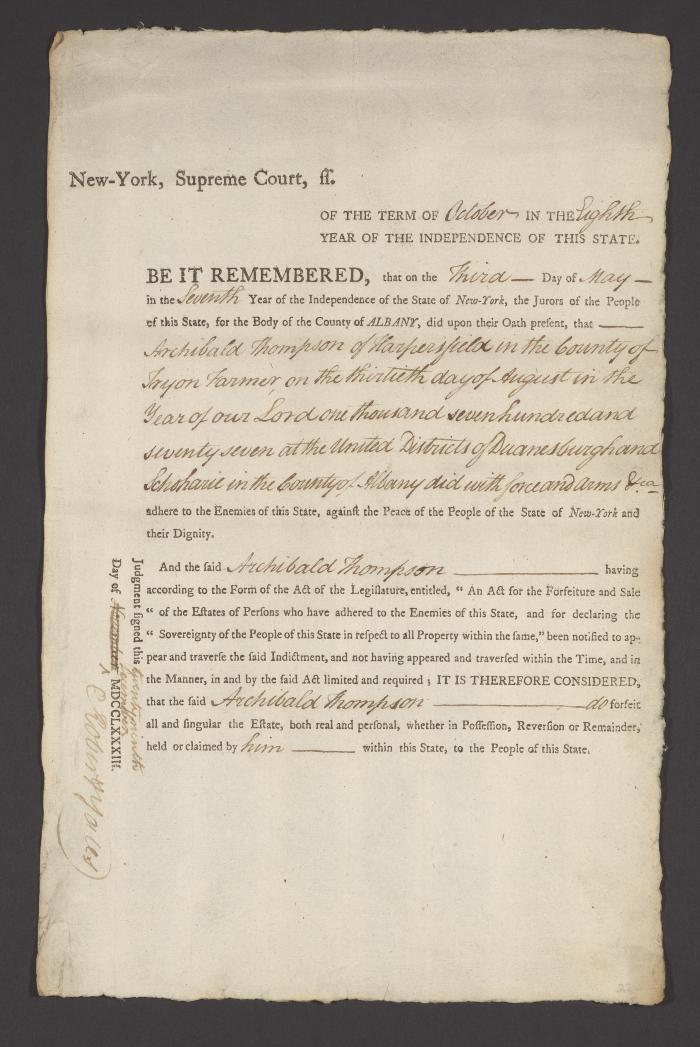 New-York, Supreme Court, ſſ.
OF THE TERM OF October IN THE Eighth
YEAR OF THE INDEPENDENCE OF THIS STATE.
BE IT REMEMBERED, that on the Third — Day of May —
in the Seventh Year of the Independence of the State of New-York, the Jurors of the People
of this State, for the Body of the County of ALBANY, did upon their Oath preſent, that —
Archibald Thompson of Harpersfield in the County of
Tryon Farmer, on the thirtieth day of August in the
Year of our Lord one thousand seven hundred and
seventy seven at the United Districts of Duanesburgh and
Schoharie in the County of Albany did with force and arms &ca
adhere to the Enemies of this State, againſt the Peace of the People of the State of New-York and
their Dignity.
And the ſaid Archibald Thompson — having
according to the Form of the Act of the Legiſlature, entitled, “ An Act for the Forfeiture and Sale
“ of the Eſtates of Perſons who have adhered to the Enemies of this State, and for declaring the
“ Sovereignty of the People of this State in reſpect to all Property within the ſame,” been notified to ap-
pear and traverſe the ſaid Indictment, and not having appeared and traverſed within the Time, and in
the Manner, in and by the ſaid Act limited and required ; IT IS THEREFORE CONSIDERED,
that the ſaid Archibald Thompson — do forfeit
all and ſingular the Eſtate, both real and perſonal, whether in Poſſeſſion, Reverſion or Remainder,
held or claimed by him — within this State, to the People of this State.
Judgment ſigned this twenty ninth
Day of November December MDCCLXXXIII.
Robert Yates